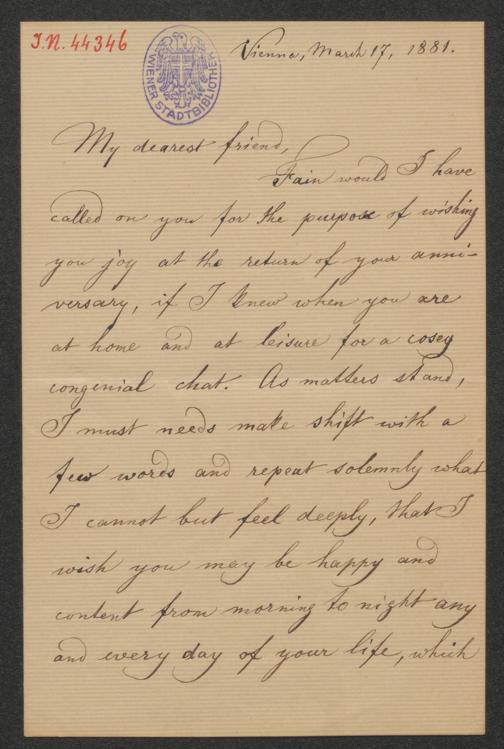 J.N. 44346
WIENER STADTBIBLIOTHEK
Vienna, March 17, 1881.
My dearest friend,
Fain would I have
called on you for the purpose of wishing
you joy at the return of your anni-
versary, if I knew when you are
at home and at leisure for a cosey
congenial chat. As matters stand,
I must needs make shift with a
few words and repeat solemnly what
I cannot but feel deeply, that I
wish you may be happy and
content from morning to night any
and every day of your life, which